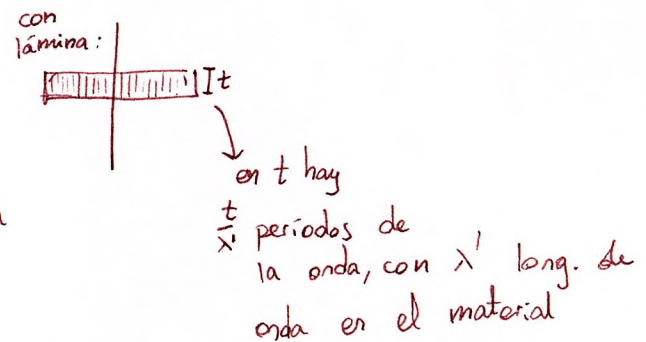 con
lámina:
It
en t hay
t/λ' períodos de
la onda, con λ' long. de
onda en el material